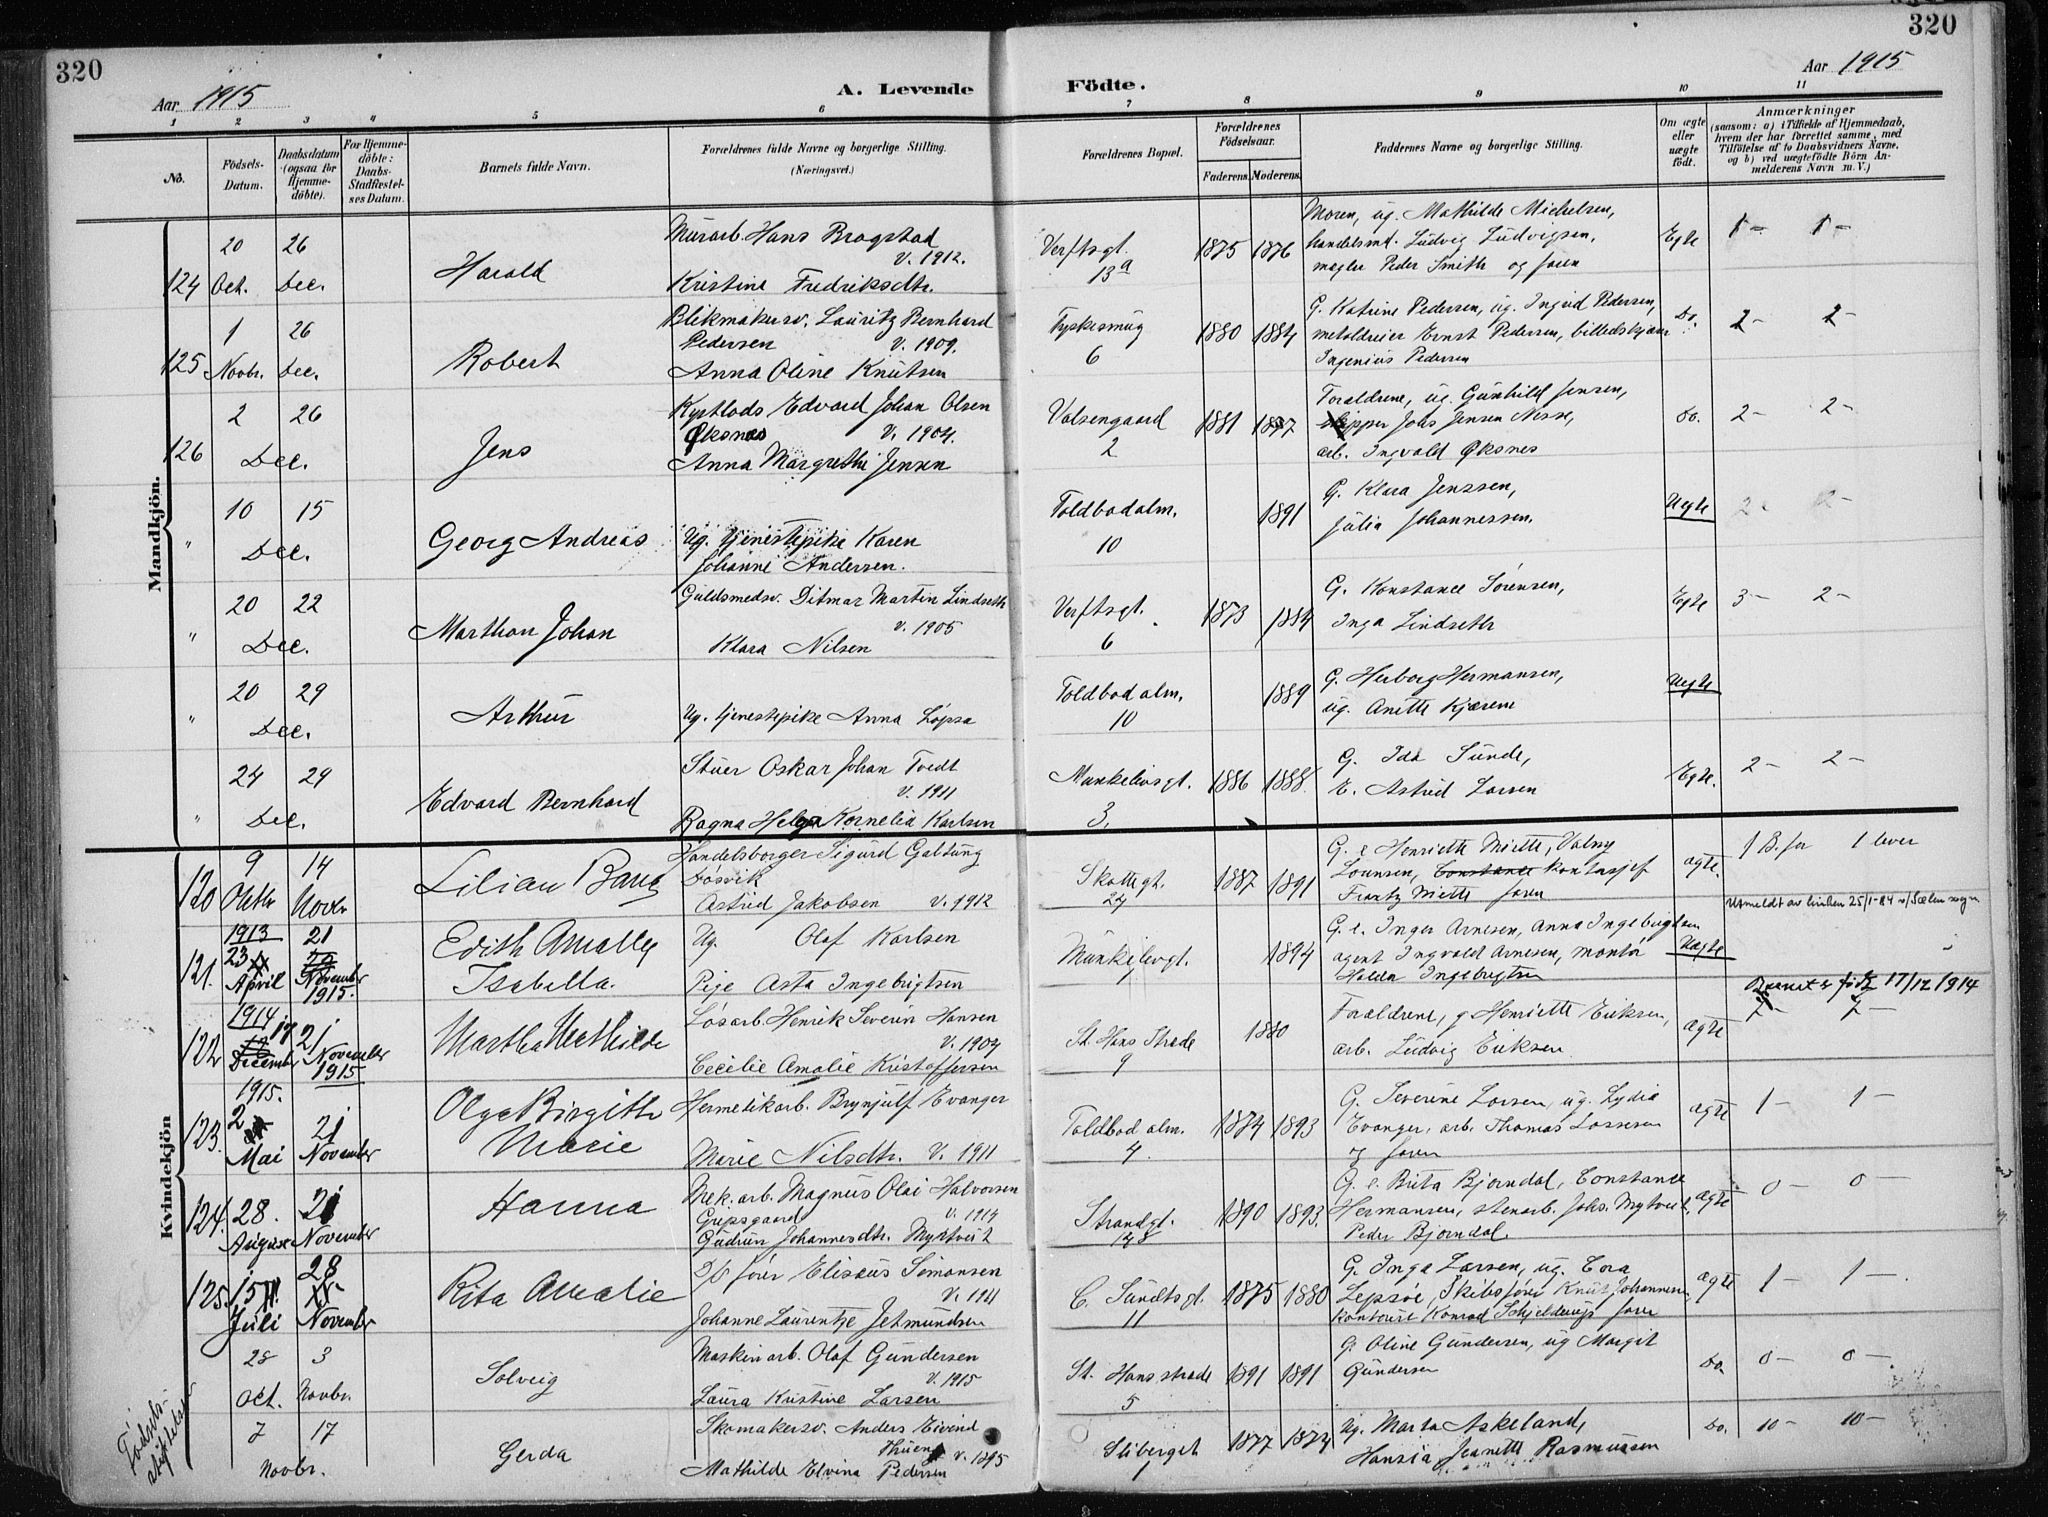 320
320
Aar 1915
A. Levende
Födte.
Aar 1915
1 2 3 4 5 6 7 8 9 10 11
No.
Födsels-Datum.
Daabsdatum (ogsaa for Hjemmedöbte).
For Hjemmedöbte: Daabs-Stadfæstelses Datum.
Barnets fulde Navn.
Forældrenes fulde Navne og borgerlige Stilling.
(Næringsvei.)
Forældrenes Bopæl.
Forældrenes Födselsaar.
Faderens. Moderens.
Faddernes Navne og borgerlige Stilling.
Om ægte eller uægte födt.
Anmærkninger
(saasom: a) i Tilfælde af Hjemmedaab, hvem der har forrettet samme, med Tilföielse af to Daabsvidners Navne, og b) ved uægtefödte Börn Anmelderens Navn m. V.)
Mandkjön.
124 20 Oct. 26 Dec. Harald
Murarb. Hans Brogstad V. 1912.
Kristine Fredriksdtr.
Verftsgt. 13a 1875 1876
Moren, ug. Mathilde Michelsen,
handelsmd. Ludvig Ludvigsen,
megler Peder Smith og faren
Egte
125 1 Novbr. 26 Dec. Robert
Blikmakersv. Lauritz Bernhard
Pedersen V. 1909.
Anna Oline Knutsen
Tyskesmug 6 1880 1884
G. Katrine Pedersen, ug. Ingrid Pedersen,
metaldreier Ernst Pedersen, billedskjær
Ingenius Pedersen
Do. 2 - 2 -
126 2 26 Dec. Jens
Kystlods Edvard Johan Olsen
Øksnes V. 1904.
Anna Margrethe Jensen
Valsengaard 2 1881
Foraldrene, ug. Gunhild Jensen,
skipper Johs Jensen Nesse,
arb. Ingvald Øksnes
Do. 2 - 2 -
" 10 15 Dec. Georg Andreas
Ug. tjenestepike Karen
Johanne Andersen.
Toldbodalm. 10 1891
G. Klara Jenssen,
Julia Johannessen.
Uegte 2 - 2 -
" 20 22 Dec. Marthon Johan
Guldsmedsv. Ditmar Martin Lindseth
V. 1905
Klara Nilsen
Verftsgt. 6 1873 1884
G. Konstance Sørensen,
Inga Lindseth
Egte 3 - 2 -
" 20 29 Dec. Arthur
Ug. tjenestepike Anna Løpsa
Toldbodalm. 10 1889
G. Herborg Hermansen,
ug. Anette Kjærem
Uegte
" 24 29 Dec. Edvard Bernhard
Stuer Oskar Johan Tvedt
V. 1911
Ragna Helga Kornelia Karlsen
Munkelivsgt. 3. 1886 1888.
G. Ida Sunde,
E. Astrid Larsen
Egte. 2 - 2 -
Kvindekjön
120 9 Oktbr 14 Novbr Lilian Bang
Handelsborger Sigurd Galtung
Døsvik
Astrid Jakobsen V. 1912
Skottegt. 24 1887 1891
G. e Henriette Miette, Valmy
Lounsen, kontorsjef
Frantz Miette faren
ægte. 1 B. før 1 lever
Utmeldt av kirken 25/1-84
121. 1913 23 April 21 November 1915. Edith Amalley
Isabella.
Ug. Olaf Karlsen
Pige Asta Ingebrigtsen
Munkelivgt. 1 1894
G. e. Inger Arnesen, Anna Ingebrigtsen
agent Ingvald Arnesen, montør
Halda Ingebrigtsen
Uægte
Barnet er født 17/12 1914
122 1914 17 December 21 November 1915 Martha Mathilde
Løsarb. Henrik Severin Hansen
V. 1904
Cecilie Amalie Kristoffersen
St. Hans Stræde 9 1880
Forældrene, g Henriette Eriksen,
arb. Ludvig Eriksen
ægte 7 - 7 -
123. 1915. 2 Mai 21 November Olga Birgithe
Marie
Hermetikarb. Brynjulf Evanger
Marie Nilsdtr. V. 1911
Toldbod alm. 4. 1874 1893
G. Severine Larsen, ug. Lydia
Evanger, arb. Thomas Lassesen
og faren
ægte 1 - 1 -
124. 28. August 21 November Hanna
Mek. arb. Magnus Olai Halvorsen
Gripsgaard V. 1914
Gudrun Johannesdtr. Myrtveit
Strandgt. 1890 1893.
G. e. Brita Bjørndal, Constance
Hermansen, stenarb. Johs. Myrtveit,
Peder Bjørndal.
ægte 0 - 0 -
125. 15 Juli 28 November Rita Amalie
D/S fører Eliseus Simonsen
V. 1911
Johanne Laurentze Jetmundsen
C. Sundtsgt. 11 1875 1880
G. Inga Larsen, ug. Cora
Lepsøe, Skibsfører Knut Johannesen,
kontorist Konrad Schjelderup, faren
ægte 1 - 1 -
28 Oct. 3 Novbr. Solveig
Maskinarb. Olaf Gundersen
V. 1915
Laura Kristine Larsen
St. Hansstræde 5 1891 1891
G. Oline Gundersen, ug Margit
Gundersen
Do. 0 - 0 -
Fødsels-
7 17 Novbr. Gerda
Skomakersv. Anders Eivind
V. 1895
Mathilde Elvina Pedersen
1877 1874
Ug. Marta Askeland,
Hansia Jeanette Rasmussen
Do. 10 - 10 -